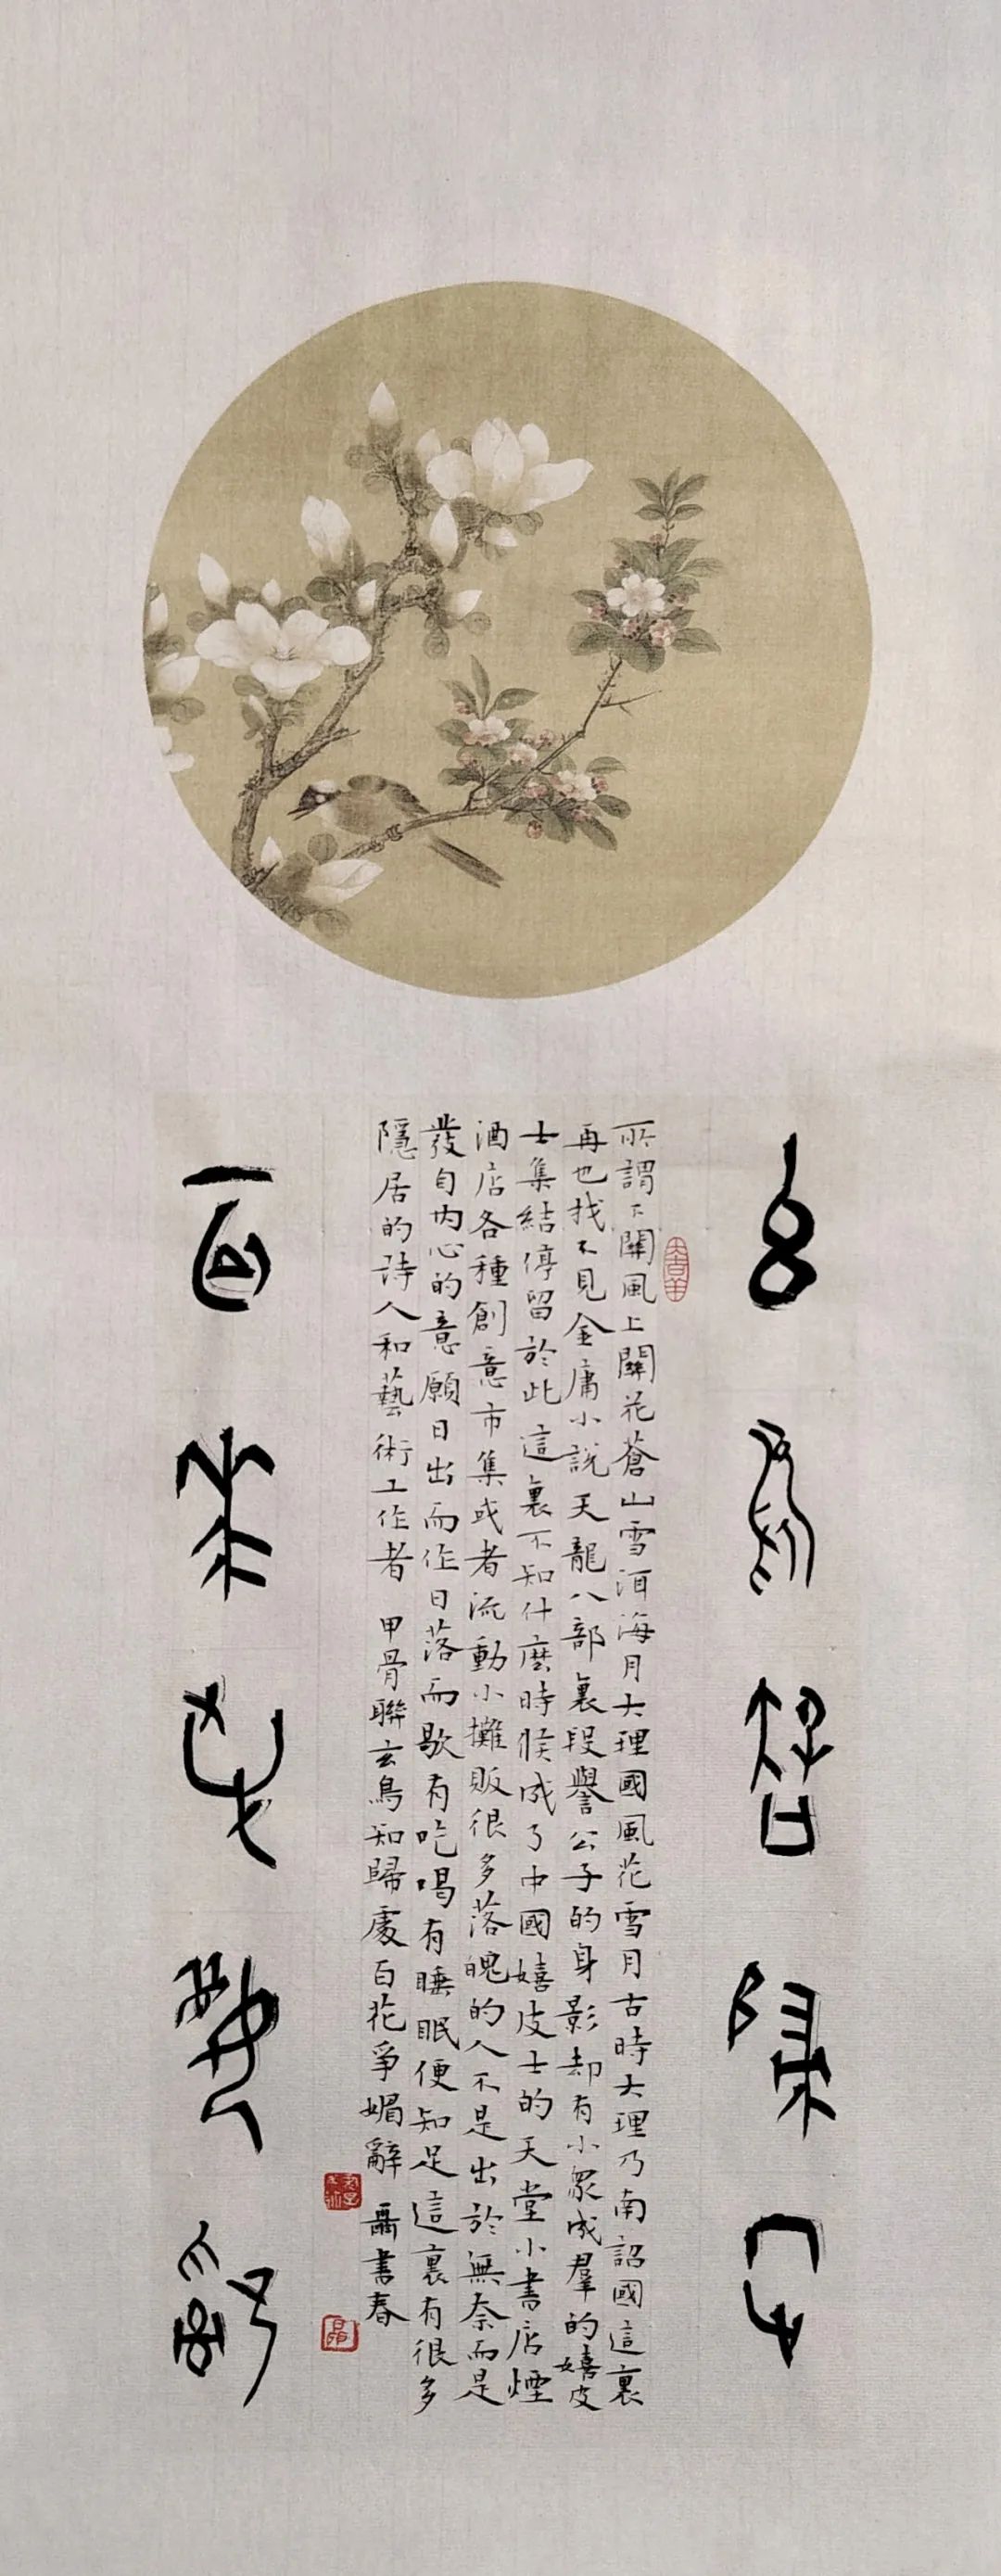 玄鳥知歸處
所謂下關風上關花蒼山雪洱海月大理國風花雪月古時大理乃南詔國這裏
再也找不見金庸小說天龍八部裏段譽公子的身影却有小眾成羣的嬉皮
士集結停留於此這裏不知什麽時候成了中國嬉皮士的天堂小書店煙
酒店各種創意市集或者流動小攤販很多落魄的人不是出於無奈而是
發自內心的意願日出而作日落而歇有吃喝有睡眠便知足這裏有很多
隱居的詩人和藝術工作者 甲骨聯玄鳥知歸處百花爭媚辭 聶書春
百花爭媚辭
大吉羊